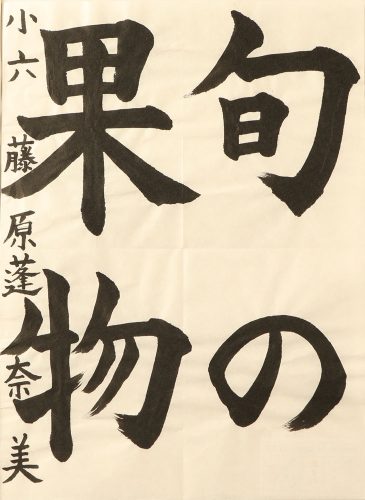 旬の
果物
小六 藤原蓬奈美